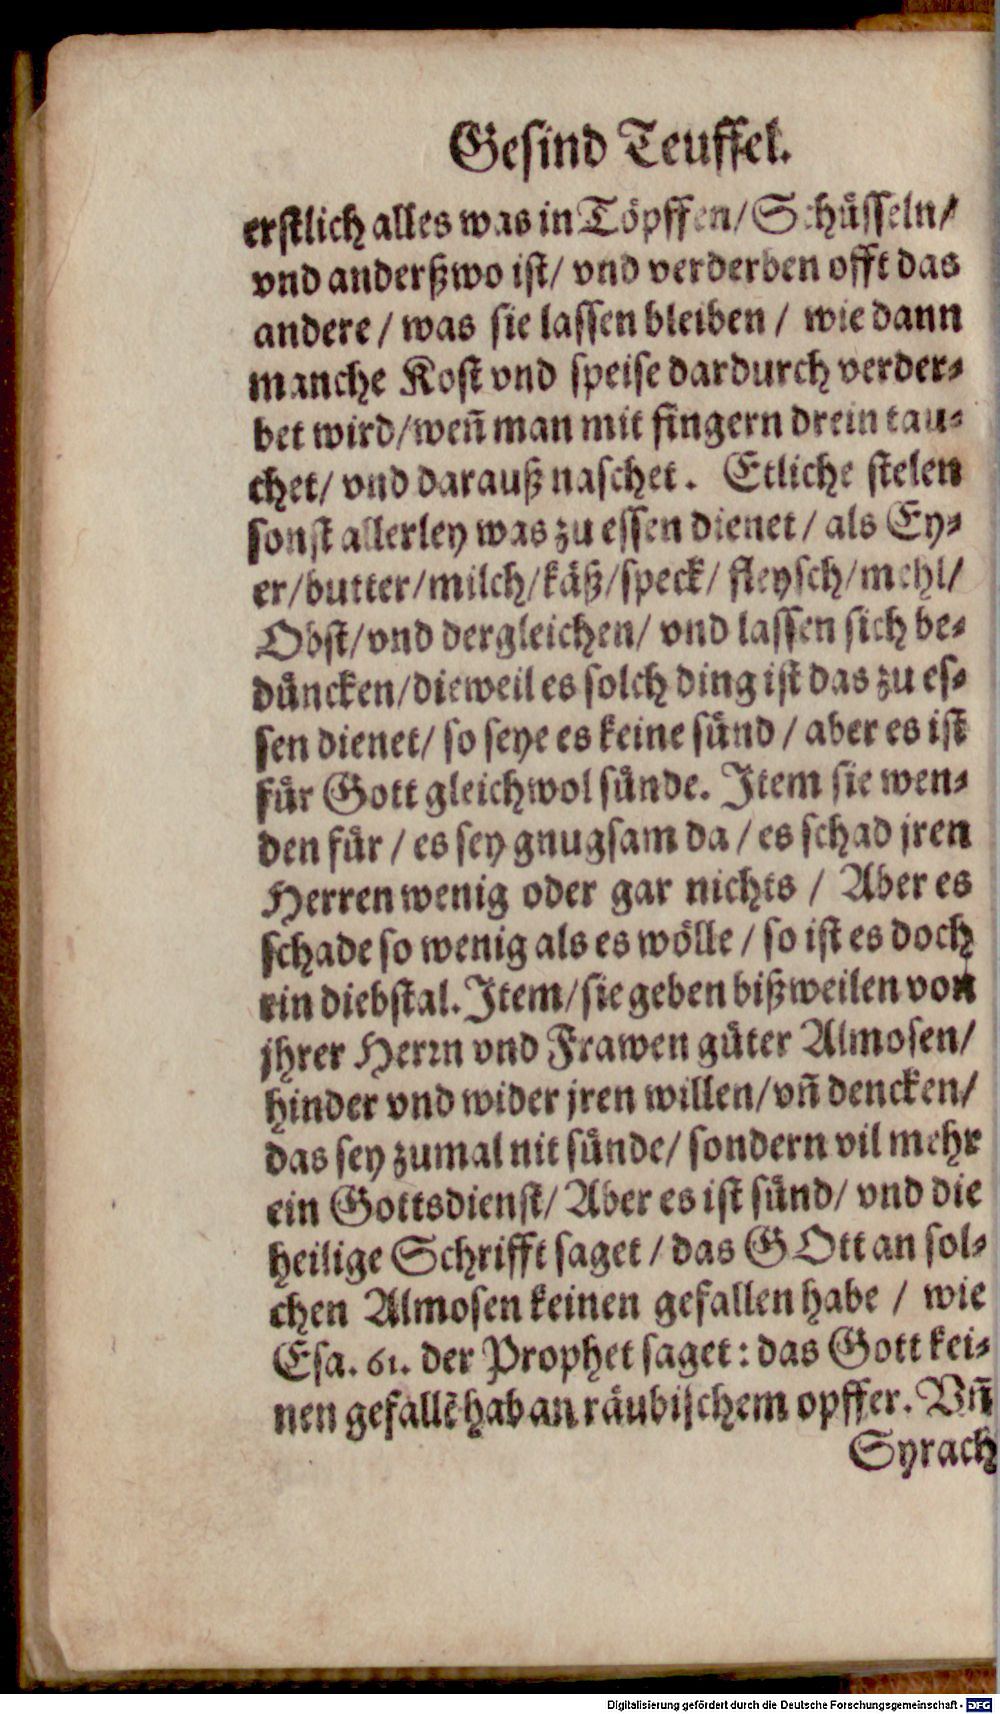 Gesind Teuffel.
erstlich alles was in Töpffen/ Schüsseln/
vnd anderßwo ist/ vnd verderben offt das
andere / was sie lassen bleiben / wie dann
manche Kost vnd speise dardurch verder⸗
bet wird/ weñ man mit fingern drein tau⸗
chet/ vnd darauß naschet. Etliche stelen
sonst allerley was zu essen dienet / als Ey⸗
er/ butter/ milch/ käß/ speck/ fleysch/ mehl/
Obst/ vnd dergleichen/ vnd lassen sich be⸗
düncken/ dieweil es solch ding ist das zu es⸗
sen dienet/ so seye es keine sünd / aber es ist
für Gott gleichwol sünde. Item sie wen⸗
den für / es sey gnugsam da / es schad jren
Herren wenig oder gar nichts / Aber es
schade so wenig als es wölle / so ist es doch
ein diebstal. Item/ sie geben bißweilen von
jhrer Herrn vnd Frawen güter Almosen/
hinder vnd wider jren willen/ vñ dencken/
das sey zumal nit sünde/ sondern vil mehr
ein Gottsdienst/ Aber es ist sünd/ vnd die
heilige Schrifft saget / das GOtt an sol⸗
chen Almosen keinen gefallen habe / wie
Esa. 61. der Prophet saget: das Gott kei⸗
nen gefallẽ hab an räubischem opffer. Vñ
Syrach
Digitalisierung gefördert durch die Deutsche Forschungsgemeinschaft - DFG